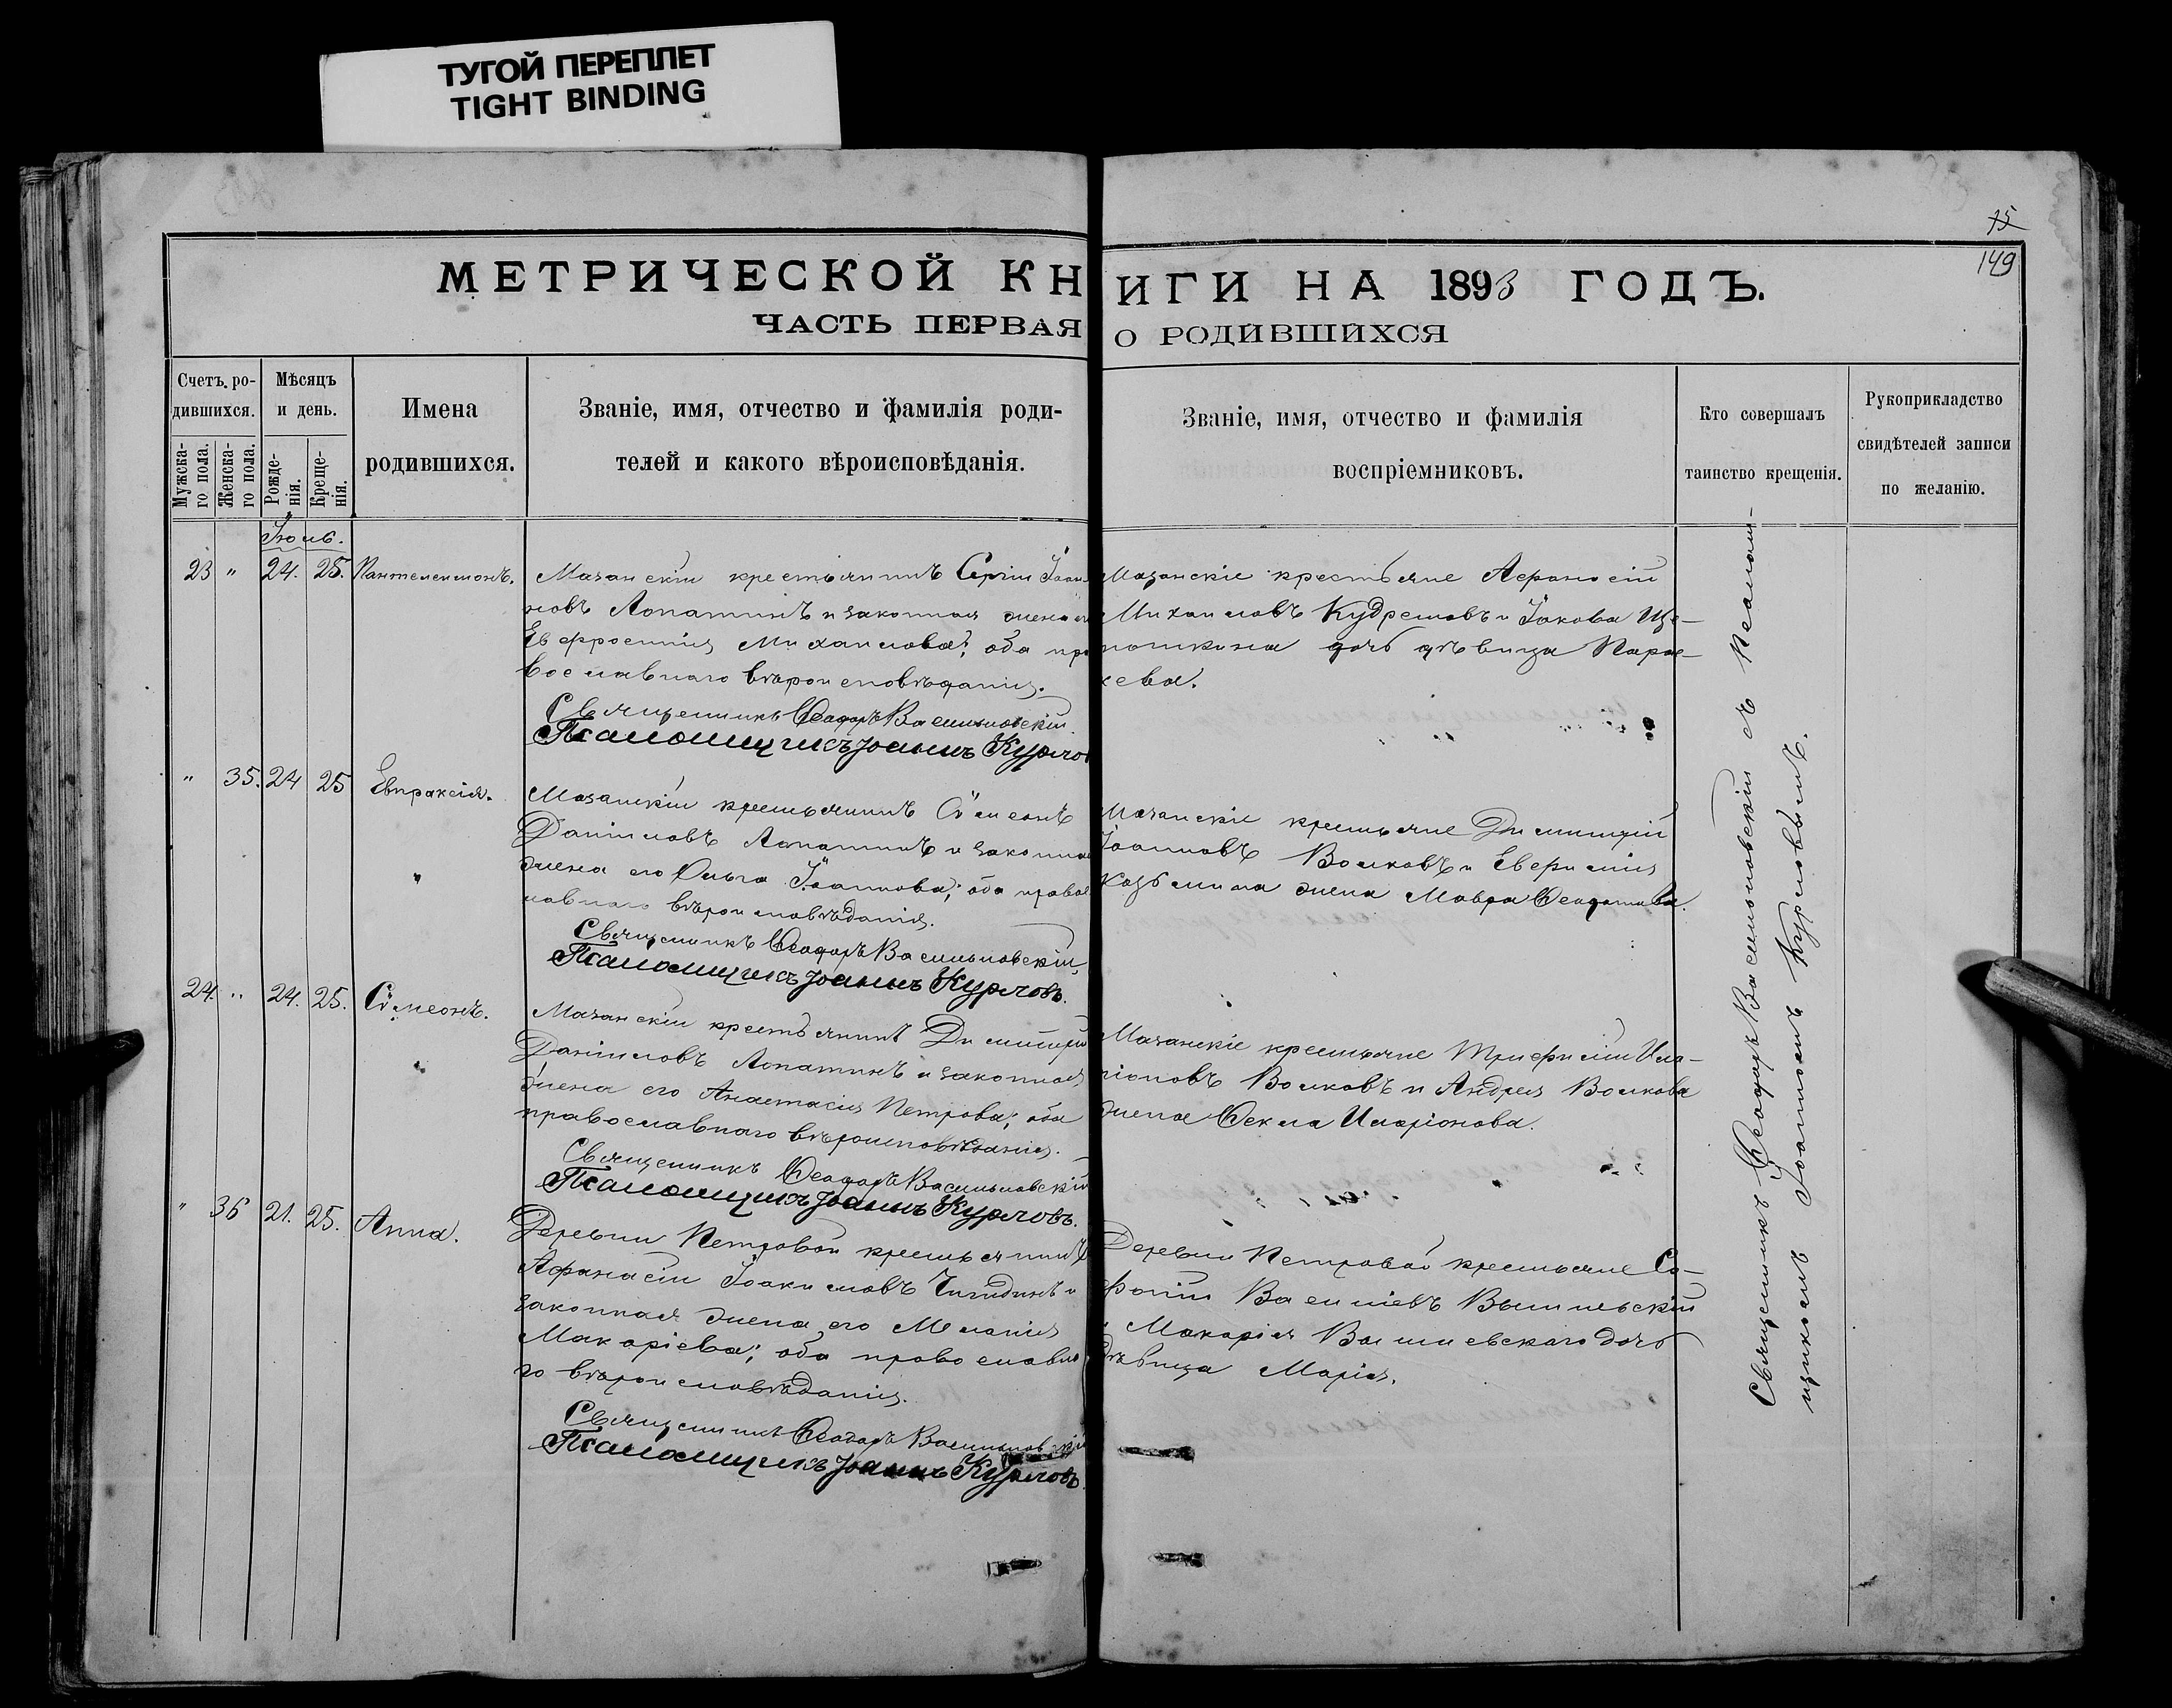 ТУГОЙ ПЕРЕПЛЕТ
TIGHT BINDING
75
149
МЕТРИЧЕСКОЙ КНИГИ НА 1893 ГОДЪ.
ЧАСТЬ ПЕРВАЯ О РОДИВШИХСЯ
Счетъ ро-
дившихся.
Мужска-
го пола.
Женска-
го пола.
Мѣсяцъ
и день.
Рожде-
нія.
Креще-
нія.
Имена
родившихся.
Званіе, имя, отчество и фамилія роди-
телей и какого вѣроисповѣданія.
Званіе, имя, отчество и фамилія
воспріемниковъ.
Кто совершалъ
таинство крещенія.
Рукоприкладство
свидѣтелей записи
по желанію.
Іюль.
23 " 24. 25. Пантелеимонъ.
Мазанскій крестьянинъ Сергій Іоан-
новъ Лопатинъ и законная жена его
Евфросинія Михаилова; оба пра
вославнаго вѣроисповѣданія.
Священникъ Ѳеодоръ Васильковскій.
Псаломщикъ Іоаннъ Курловъ
Мазанскіе крестьяне Аѳанасій
Михаиловъ Кудрешовъ и Іакова Ще-
поткина дочь дѣвица Парас-
кева.
" 35. 24 25 Евпраксія.
Мазанскій крестьянинъ Сѵмеонъ
Даніиловъ Лопатинъ и законная
жена его Ольга Іоаннова; оба правос
лавнаго вѣроисповѣданія.
Священникъ Ѳеодоръ Васильковскій.
Псаломщикъ Іоаннъ Курловъ.
Мазанскіе крестьяне Димитрій
Іоанновъ Волковъ и Евфимія
Козьмина жена Мавра Ѳеодотова.
24. " 24. 25. Сѵмеонъ.
Мазанскій крестьянинъ Димитрій
Даніиловъ Лопатинъ и законная
жена его Анастасія Петрова; оба
православнаго вѣроисповѣданія.
Священникъ Ѳеодоръ Васильковскій
Псаломщикъ Іоаннъ Курловъ.
Мазанскіе крестьяне Трифилій Ила-
ріоновъ Волковъ и Андрея Волкова
жена Ѳекла Иларіонова.
" 36 21. 25. Анна.
Деревни Петровой крестьянинъ
Аѳанасій Іоакимовъ Чигидинъ и
законная жена его Меланія
Макаріева; оба православна
го вѣроисповѣданія.
Священникъ Ѳеодоръ Васильковскій
Псаломщикъ Іоаннъ Курловъ.
Деревни Петровой крестьяне Со-
фоній Василіевъ
и Макарія дочь
дѣвица Марія.
Священникъ Ѳеодоръ Васильковскій съ Псалом-
щикомъ Іоанномъ Курловымъ.